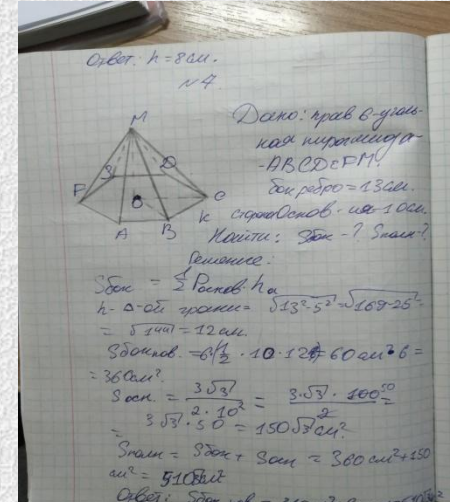 Ответ: h = 8 см.
№ 7
M
F
A
B
K
Дано: прав 6-уголь-
ная пирамида
-ABCDEFM
бок ребро = 13 см.
сторона основ-ия 10 см.
Найти: Sбок - ? Sполн - ?
Решение:
Sбок = 1/2 Pоснов · ha
h - △-ой грани = √13²-5² = √169-25 =
= √144 = 12 см.
= 6(1/2 · 10 · 12) = 60 см² · 6 =
= 360 см².
Sосн. = 3√3 / 2 · 10² = 3·√3 · 100 / 2 =
= 3√3 · 50 = 150√3 см².
Sполн = Sбок + Sосн = 360 см² + 150
см² = 510 см²
Ответ: